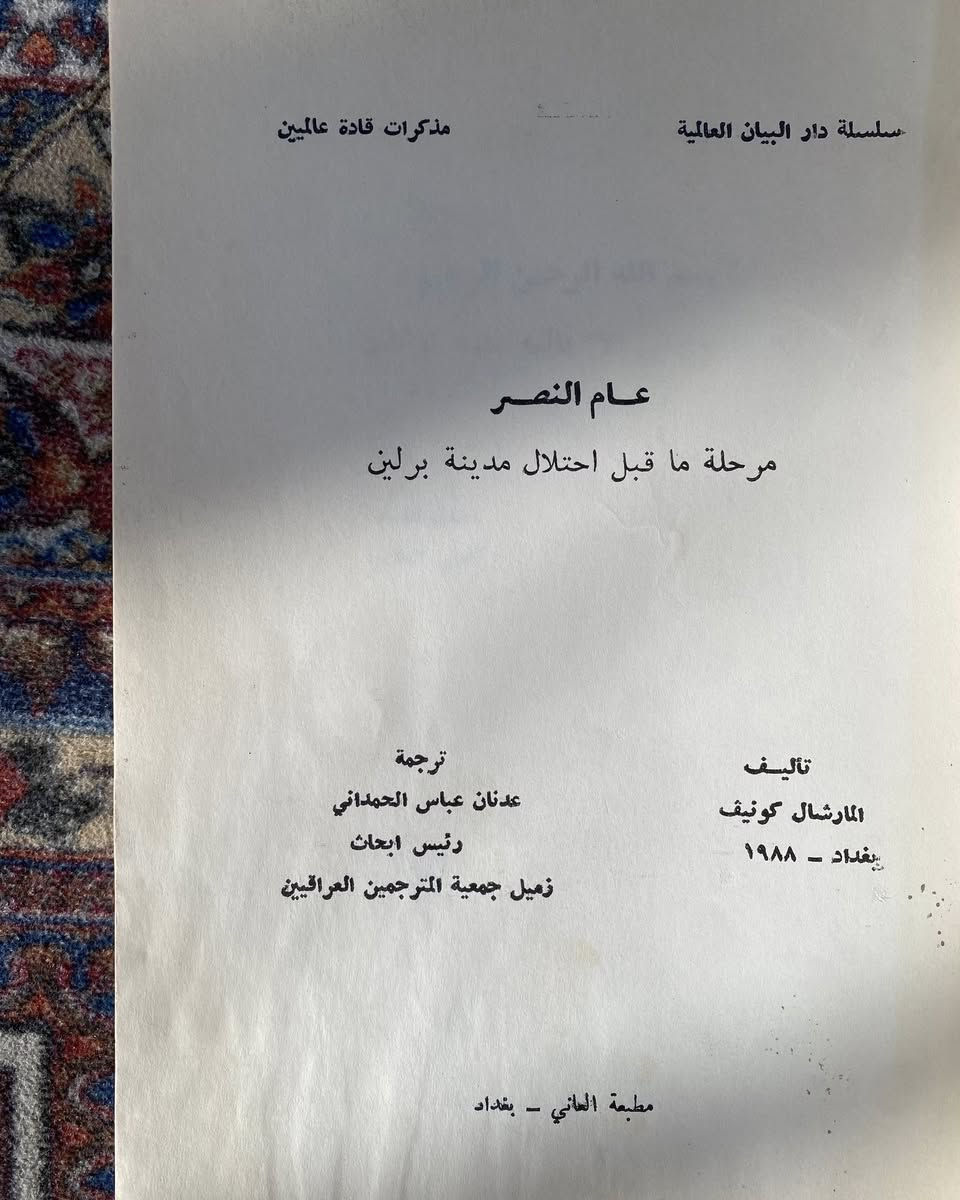 سلسلة دار البيان العالمية
مذكرات قادة عالميين
عــام النصــر
مرحلة ما قبل احتلال مدينة برلين
تأليــف
المارشال كونيڤ
بغداد ــ ١٩٨٨
ترجمة
عدنان عباس الحمداني
رئيس ابحاث
زميل جمعية المترجمين العراقيين
مطبعة العاني ــ بغداد